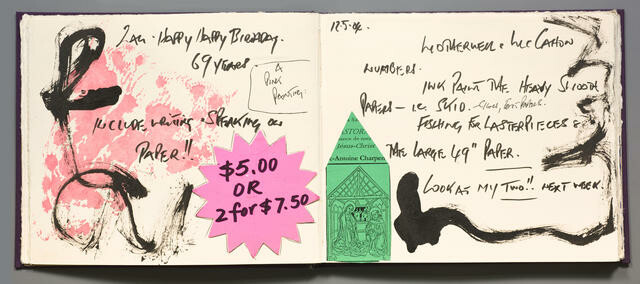 Happy Happy Birthday.
69 Years
A
Pink
Painting.
Include writing & speaking on
Paper!!
$5.00
OR
2 for $7.50
12.5.04.
Motherwell & McCahon
Numbers.
Ink Paint the Heavy Smooth
Papers — i.e.
Fishing for Lasterpieces &
The Large 49" Paper.
Look at my Two!! next week.
PASTOR
Jésus-Christ
-Antoine Charpen